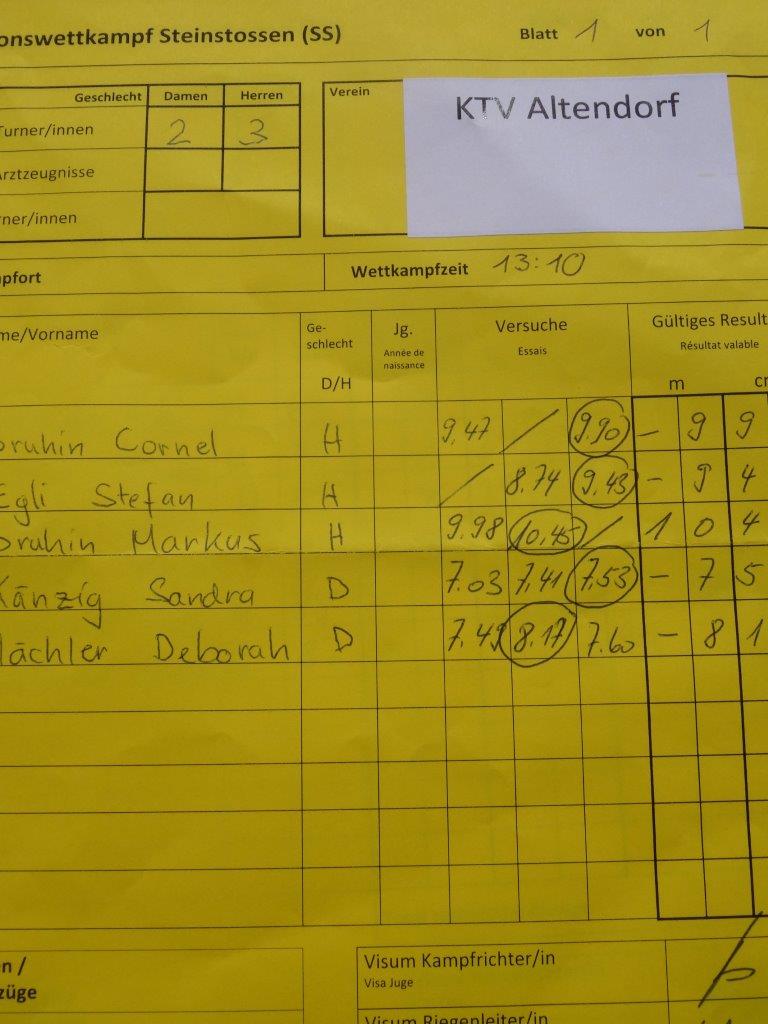 onswettkampf Steinstossen (SS) Blatt 1 von 1
Geschlecht Damen Herren
Verein
KTV Altendorf
Turner/innen 2 3
rztzeugnisse
rner/innen
pfort
Wettkampfzeit 13:10
me/Vorname
Ge-
schlecht
D/H
Jg.
Année de
naissance
Versuche
Essais
Gültiges Result
Résultat valable
m cm
ruhin Cornel H 9.47 / 9.90 - 9 9
Egli Stefan H / 8.74 9.43 - 9 4
ruhin Markus H 9.98 10.45 / 1 0 4
Känzig Sandra D 7.03 7.41 7.53 - 7 5
ächler Deborah D 7.49 8.17 7.60 - 8 1
n /
züge
Visum Kampfrichter/in
Visa Juge
Visum Riegenleiter/in